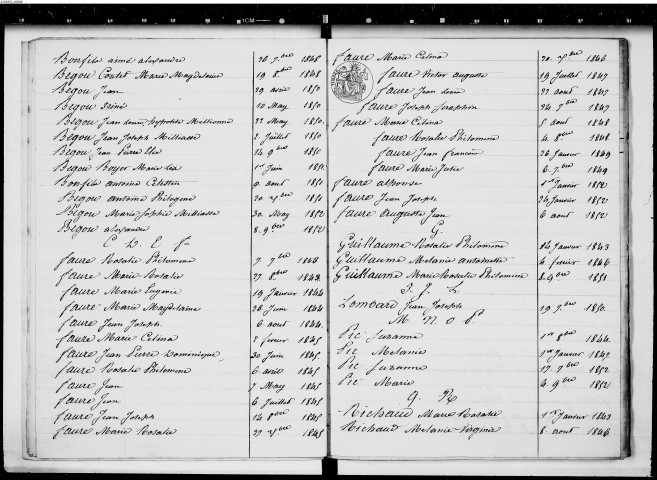 Bonfils aimé alexandre 26 7bre 1848
Begou Coutet Marie Magdelaine 19 8bre 1848
Begou Jean 29 avril 1850
Begou 10 May 1850
Begou Jean Louis hypolite Millionne 22 May 1850.
Begou Jean Joseph Milliasse 2 Juillet 1850
Begou Jean Pierre Elie 14 9bre 1850
Begou Boyer Marie 1er Juin 1851.
Bonfils antoine Celestin 9 aout 1851
Begou antoine Philogene 20 1851
Begou Marie Sophie Milliasse 30 May 1852
Begou alexandre 8. 9bre 1852
C D. E F
faure Rosalie Philomene 7 7bre 1843
faure Marie Rosalie 27 8bre 1843.
faure Marie Eugenie 19 Janvier 1844
faure Marie Magdelaine 26 Juin 1844
faure Jean Joseph 6 aout 1844.
faure Marie Celina 2 fevrier 1845
faure Jean Pierre Dominique 30 Juin 1845.
faure Rosalie Philomene 6 avril 1845
faure Jean 7 May 1845
faure Jean 6 Juillet 1845
faure Jean Joseph 14 1845
faure Marie Rosalie 27 1845
faure Marie Celina 20. 1846
faure Victor auguste 19 Juillet 1847
faure Jean Louis 22 aout 1847
faure Joseph Seraphin 26 7bre 1847.
faure Marie Celina 5 aout 1848
faure Rosalie Philomene 4 8bre 1848
faure Jean francois 26 Janvier 1849
faure Marie 6 7bre 1849
faure alphonse 1er Janvier 1852
faure Jean Joseph 24 Janvier 1852
faure auguste Jean 6 aout 1852
G.
Guillaume Rosalie Philomene 14 Janvier 1843
Guillaume Melanie antoinette 4 fevrier 1846
Guillaume Marie Rosalie Philomene 8. 9bre 1851
I. J. L.
Lombard Jean Joseph 19 7bre 1850.
M. N. O P.
Pic Suzanne 1er 8bre 1844
Pic Melanie 1er Janvier 1847.
Pic Suzanne 17 7bre 1852
Pic Marie 4 9bre 1852
Q. R
Richaud Marie Rosalie 1er Janvier 1843
Richaud Melanie Virginie 8. aout 1846